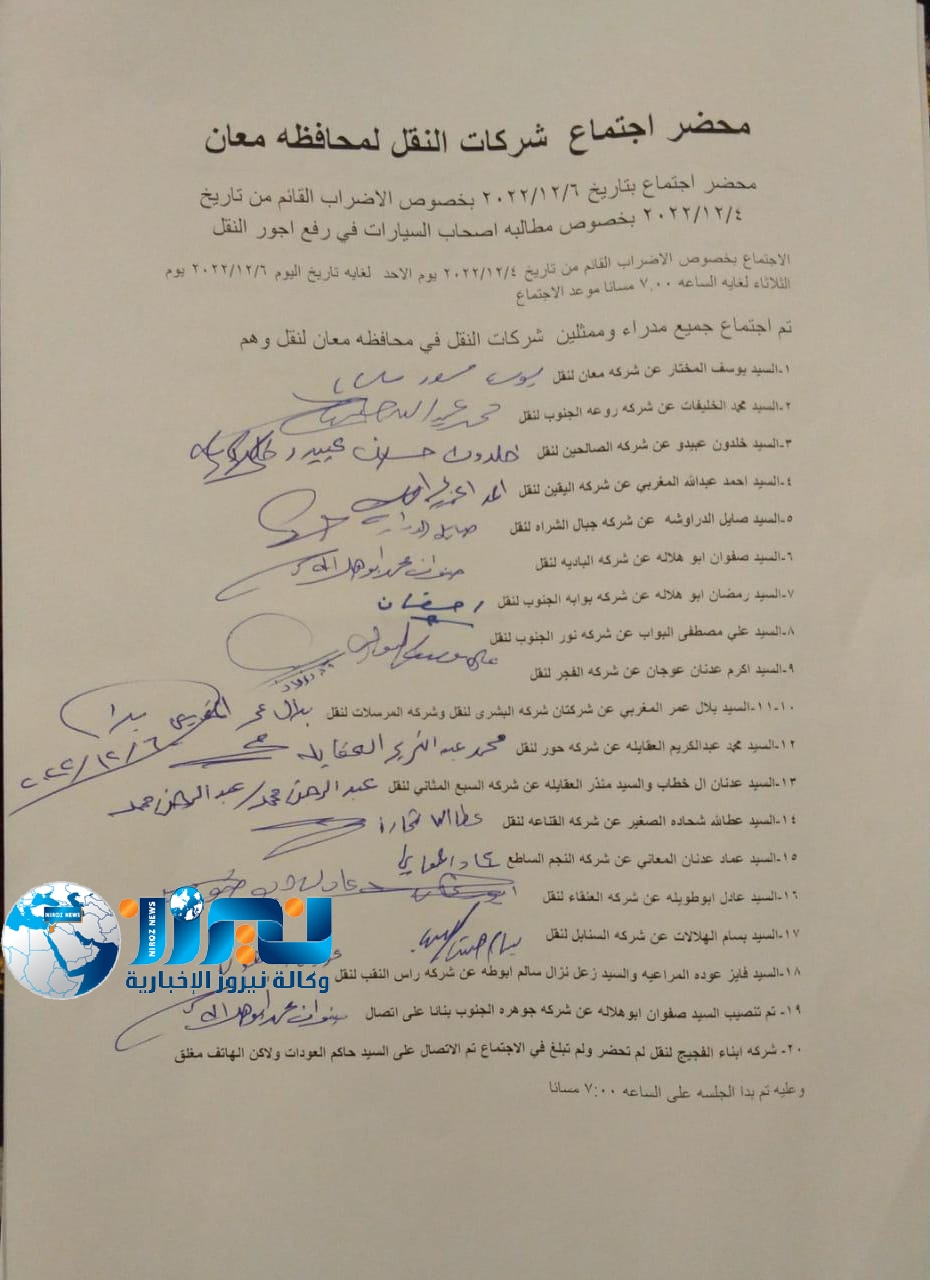 محضر اجتماع شركات النقل لمحافظه معان
محضر اجتماع بتاريخ ٢٠٢٢/١٢/٦ بخصوص الاضراب القائم من تاريخ
٢٠٢٢/١٢/٤ بخصوص مطالبه اصحاب السيارات في رفع اجور النقل
الاجتماع بخصوص الاضراب القائم من تاريخ ٢٠٢٢/١٢/٤ يوم الاحد لغايه تاريخ اليوم ٢٠٢٢/١٢/٦ يوم
الثلاثاء لغايه الساعه ٧,٠٠ مسانا موعد الاجتماع
تم اجتماع جميع مدراء وممثلين شركات النقل في محافظه معان لنقل وهم
١-السيد يوسف المختار عن شركه معان لنقل
٢-السيد محمد الخليفات عن شركه روعه الجنوب لنقل محمد عبدالله
٣-السيد خلدون عبيدو عن شركه الصالحين لنقل خلدون حسان عبيدو
٤-السيد احمد عبدالله المغربي عن شركه اليقين لنقل
٥-السيد صايل الدراوشه عن شركه جبال الشراه لنقل صايل
٦-السيد صفوان ابو هلاله عن شركه الباديه لنقل صفوان محمد ابو هلاله
٧-السيد رمضان ابو هلاله عن شركه بوابه الجنوب لنقل رمضان
٨-السيد علي مصطفى البواب عن شركه نور الجنوب لنقل علي مصطفى البواب
٩-السيد اكرم عدنان عوجان عن شركه الفجر لنقل
١٠-١١-السيد بلال عمر المغربي عن شركتان شركه البشرى لنقل وشركه المرسلات لنقل بلال عمر المغربي
٢٠٢٢/١٢/٦
١٢-السيد محمد عبدالكريم العقايله عن شركه حور لنقل محمد عبد الكريم العقايله
١٣-السيد عدنان ال خطاب والسيد منذر العقايله عن شركه السبع المثاني لنقل عبد الرحمن محمد/عبد الرحمن محمد
١٤-السيد عطالله شحاده الصغير عن شركه القناعه لنقل عطالله شحاده
١٥-السيد عماد عدنان المعاني عن شركه النجم الساطع عماد المعاني
١٦-السيد عادل ابوطويله عن شركه العنقاء لنقل
١٧-السيد بسام الهلالات عن شركه السنابل لنقل بسام
١٨-السيد فايز عوده المراعيه والسيد زعل نزال سالم ابوطه عن شركه راس النقب لنقل
١٩-تم تنصيب السيد صفوان ابوهلاله عن شركه جوهره الجنوب بنانا على اتصال صفوان محمد ابوهلاله
٢٠-شركه ابناء الفجيج لنقل لم تحضر ولم تبلغ في الاجتماع تم الاتصال على السيد حاكم العودات ولاكن الهاتف مغلق
وعليه تم بدا الجلسه على الساعه ٧:٠٠ مسانا
NIROZ NEWS
نيروز
NIROZ NEWS
وكالة نيروز الإخبارية